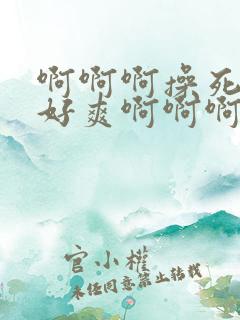 啊啊啊操死
好爽啊啊啊
官小權
未经同意禁止转载